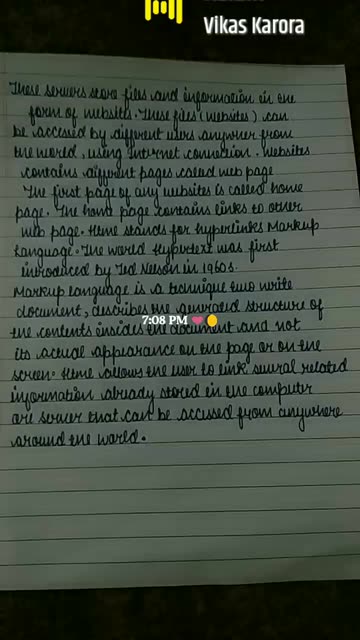 Vikas Karora
These servers store files and information in the
form of website. These files (websites) can
be accissed by different users anywher from
the world, using internet connection. Websites
contains different pages calead web page
The first page of any websites is called home
page. The home page contains links to other
web page. Htme stands for hyperlinks Markup
language. The world Hypertext was first
introduced by Ted Neeson in 1960s.
Markup language is a technique two write
document, describes the genrated structure of
7:08 PM ❤️🟡
the contents insides the document and not
its actual appearance on the page or on the
screen. Htme allows the user to link seural related
information already stored in the computer
are server that can be accissed from anywhere
around the world.